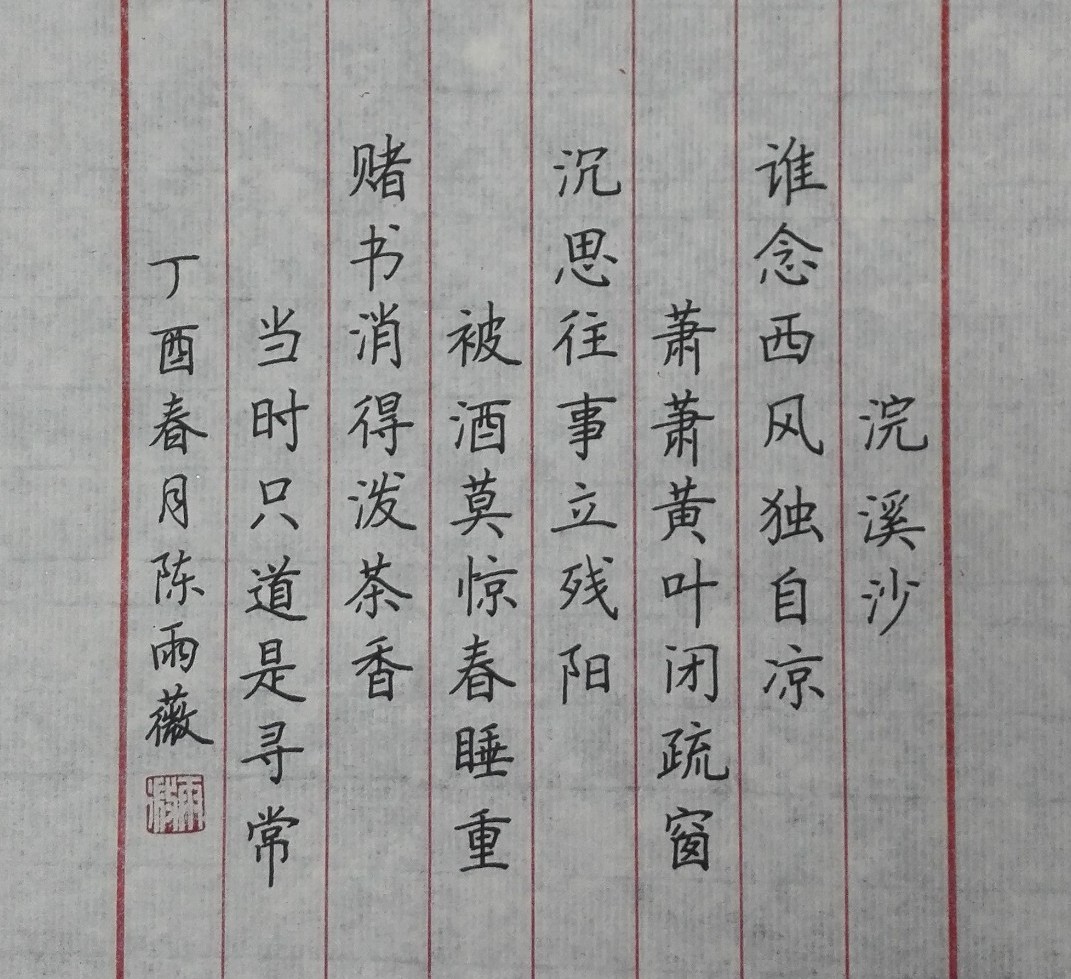 浣溪沙
谁念西风独自凉
萧萧黄叶闭疏窗
沉思往事立残阳
被酒莫惊春睡重
赌书消得泼茶香
当时只道是寻常
丁酉春月陈雨薇